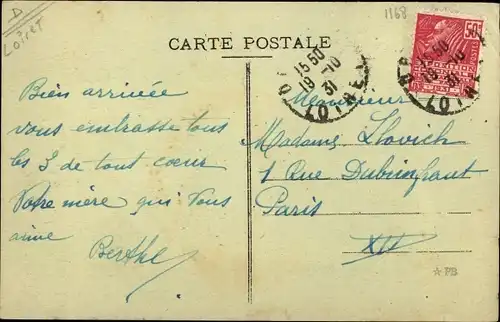 D
Loiret
1168
CARTE POSTALE
50c
1931
15 50
19 -10
31
LOIRET
15 50
19 -10
31
LOIRET
Bien arrivée
vous embrasse tous
les 3 de tout cœur
Votre mère qui vous
aime
Berthe
Monsieur
Madame Llovich
1 Rue Dubrinfaut
Paris
XII
★PB